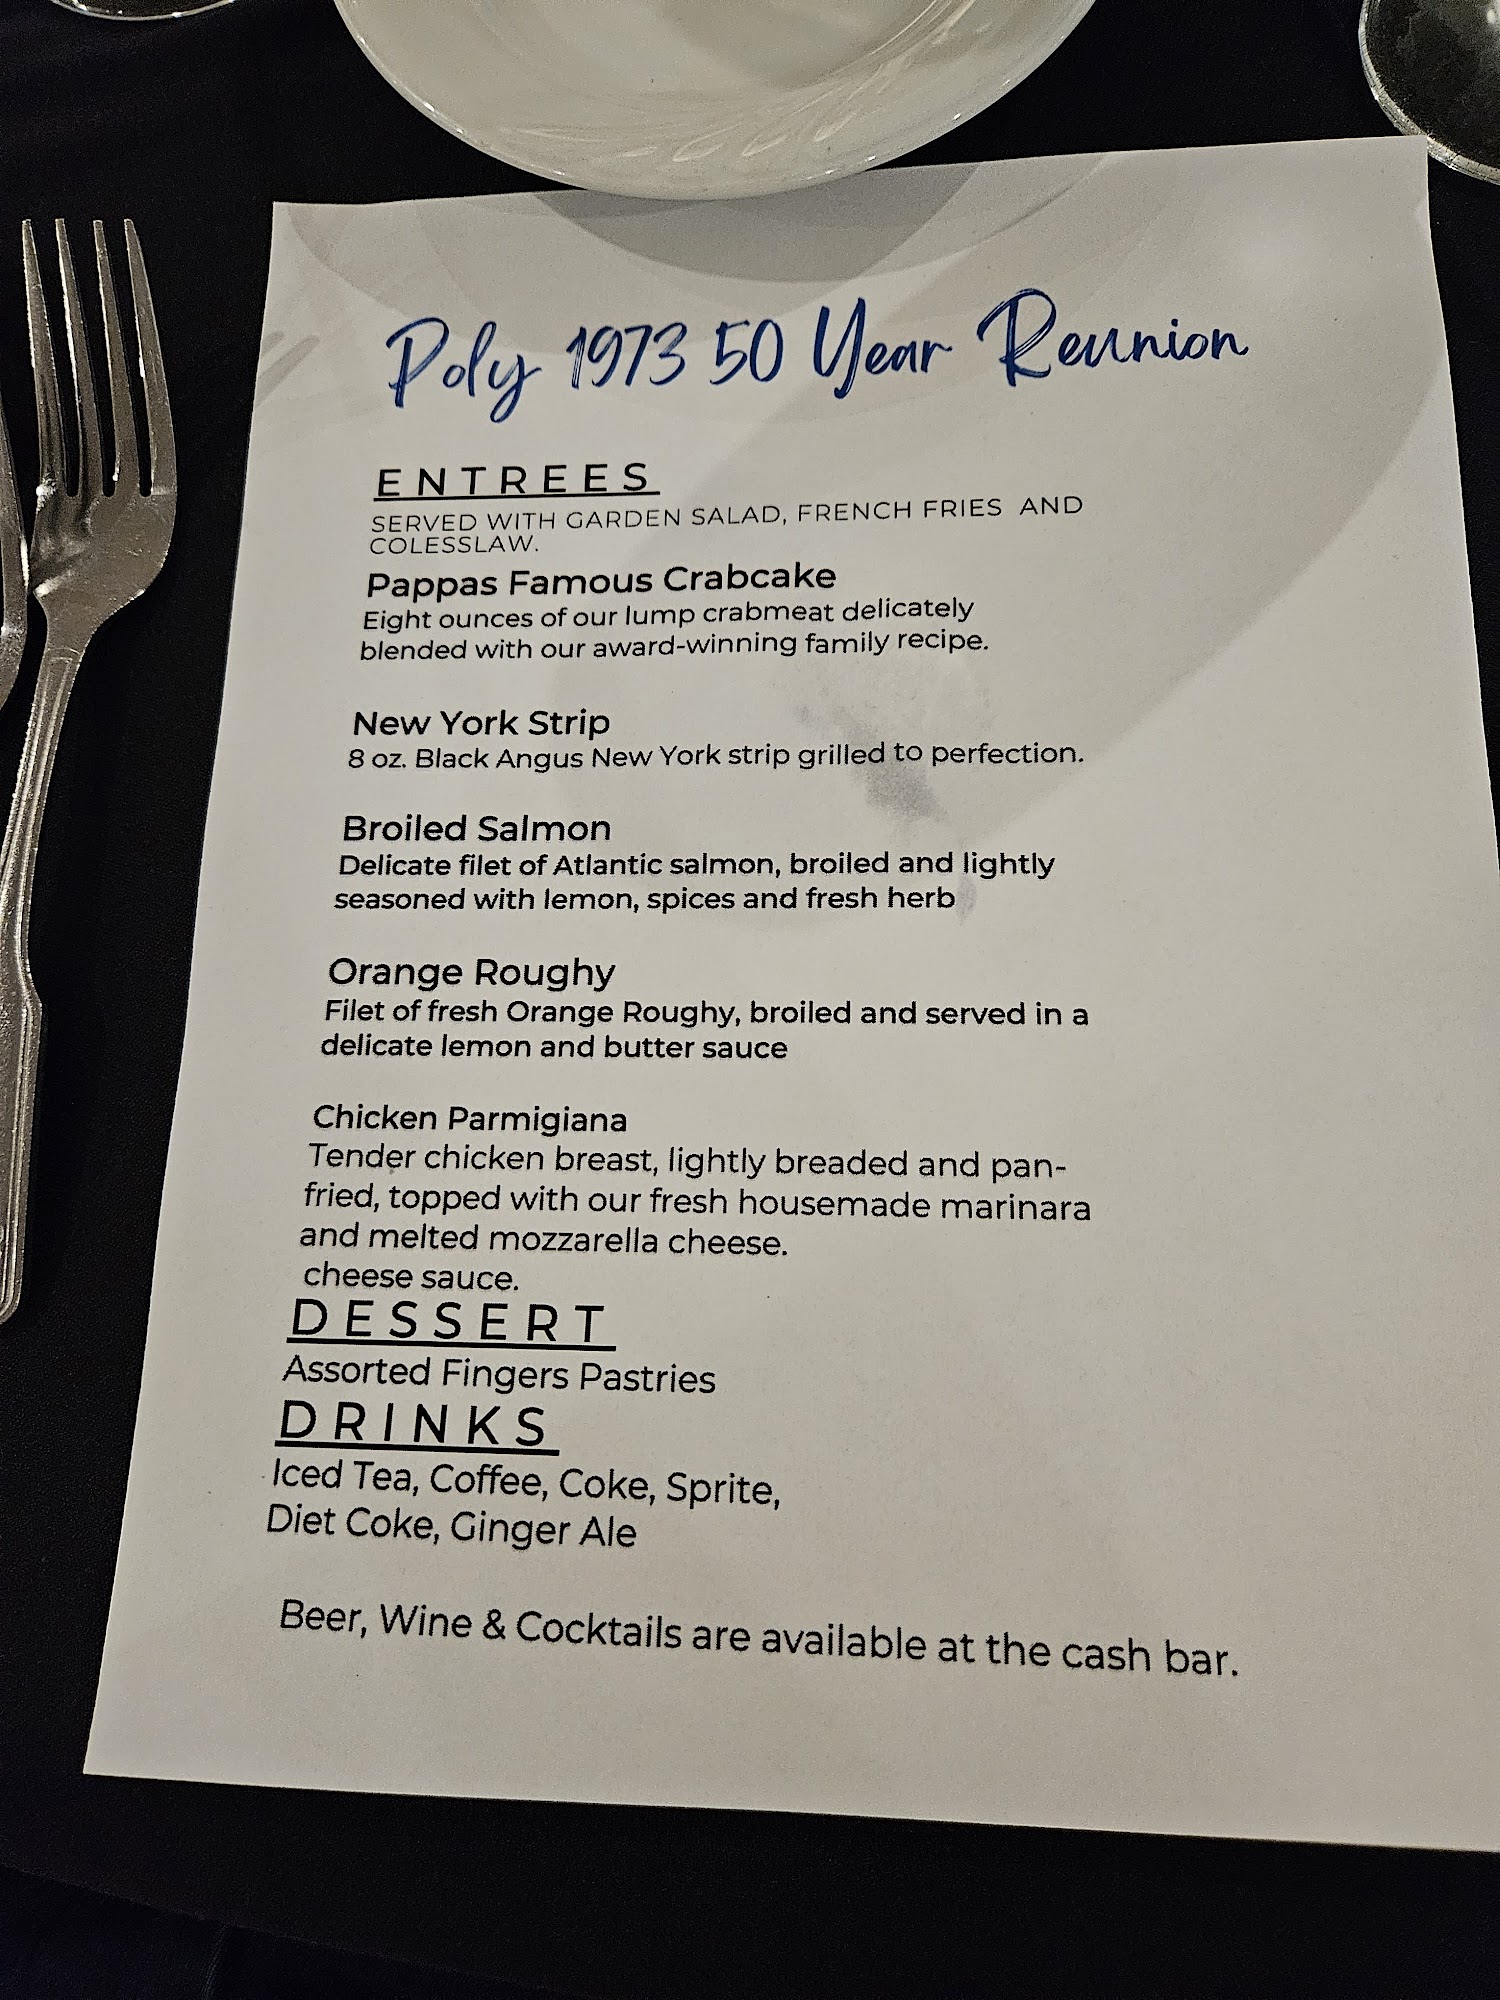 Poly 1973 50 Year Reunion
ENTREES
SERVED WITH GARDEN SALAD, FRENCH FRIES AND
COLESSLAW.
Pappas Famous Crabcake
Eight ounces of our lump crabmeat delicately
blended with our award-winning family recipe.
New York Strip
8 oz. Black Angus New York strip grilled to perfection.
Broiled Salmon
Delicate filet of Atlantic salmon, broiled and lightly
seasoned with lemon, spices and fresh herb
Orange Roughy
Filet of fresh Orange Roughy, broiled and served in a
delicate lemon and butter sauce
Chicken Parmigiana
Tender chicken breast, lightly breaded and pan-
fried, topped with our fresh housemade marinara
and melted mozzarella cheese.
cheese sauce.
DESSERT
Assorted Fingers Pastries
DRINKS
Iced Tea, Coffee, Coke, Sprite,
Diet Coke, Ginger Ale
Beer, Wine & Cocktails are available at the cash bar.